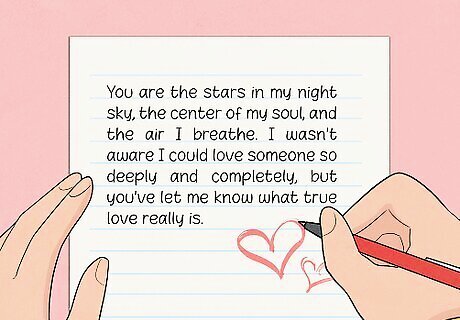 You are the stars in my night
sky, the center of my soul, and
the air I breathe. I wasn't
aware I could love someone so
deeply and completely, but
you've let me know what true
love really is.